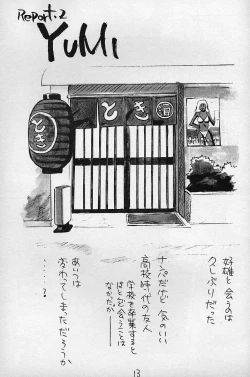 Report.2
YUMI
とき 酒
とき
好雄と会うのは
久しぶりだった
ナンパだけど 気のいい
高校時代の友人
学校を卒業すると
ほとんど会うことは
なかった
あいつは
変わってしまっただろうか
……?
13